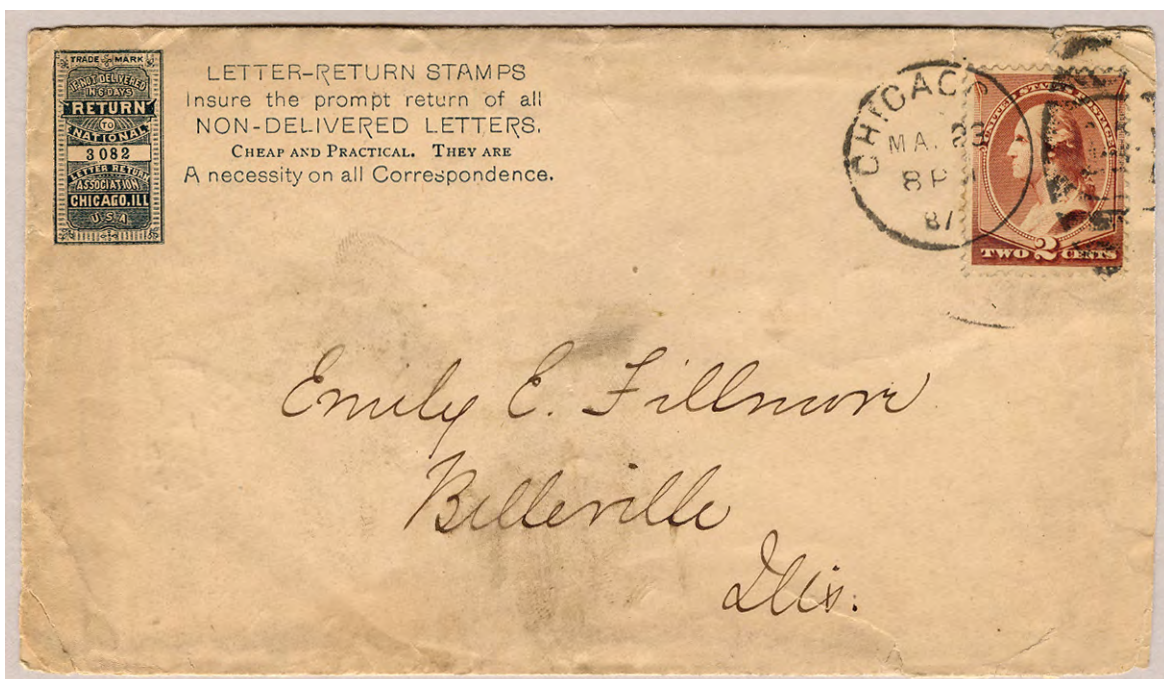 TRADE MARK
IF NOT DELIVERED
IN 6 DAYS
RETURN
TO
NATIONAL
3082
LETTER RETURN
ASSOCIATION
CHICAGO, ILL
U S A
LETTER-RETURN STAMPS
Insure the prompt return of all
NON-DELIVERED LETTERS.
CHEAP AND PRACTICAL. THEY ARE
A necessity on all Correspondence.
CHICAGO
23
8 P
87
UNITED STATES POSTAGE
TWO 2 CENTS
Emily E. Fillmore
Belleville
Ills.